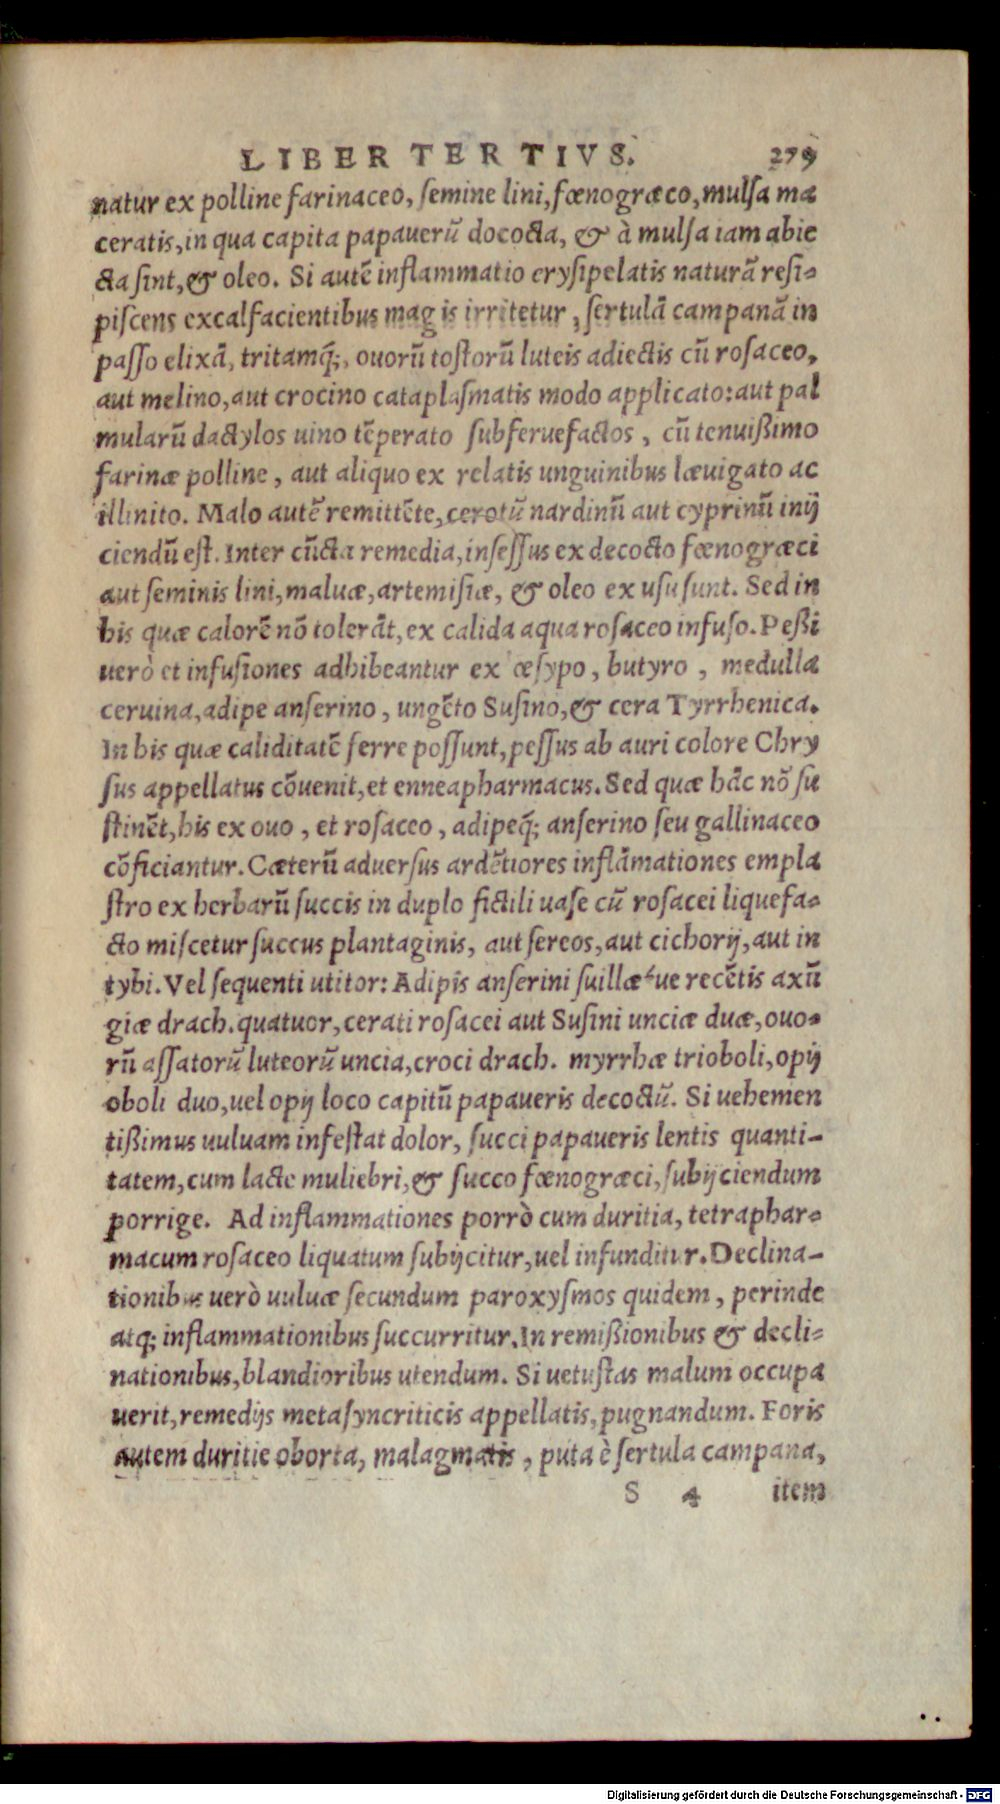 LIBER TERTIVS. 279
natur ex polline farinaceo, semine lini, fœnogræco, mulsa ma
ceratis, in qua capita papauerũ dococta, & à mulsa iam abie
cta sint, & oleo. Si autẽ inflammatio erysipelatis naturã resi-
piscens excalfacientibus mag is irritetur, sertulã campanã in
passo elixã, tritamq́;, ouorũ tostorũ luteis adiectis cũ rosaceo,
aut melino, aut crocino cataplasmatis modo applicato: aut pal
mularũ dactylos uino tẽperato subferuefactos, cũ tenuißimo
farinæ polline, aut aliquo ex relatis unguinibus læuigato ac
illinito. Malo autẽ remittẽte, cerotũ nardinũ aut cyprinũ inij
ciendũ est. Inter cũcta remedia, insessus ex decocto fœnogræci
aut seminis lini, maluæ, artemisiæ, & oleo ex usu sunt. Sed in
his quæ calorẽ nõ tolerãt, ex calida aqua rosaceo infuso. Peßi
uerò et infusiones adhibeantur ex œsypo, butyro, medulla
ceruina, adipe anserino, ungẽto Susino, & cera Tyrrhenica.
In his quæ caliditatẽ ferre possunt, pessus ab auri colore Chry
sus appellatus cõuenit, et enneapharmacus. Sed quæ hãc nõ su
stinẽt, his ex ouo, et rosaceo, adipeq́; anserino seu gallinaceo
cõficiantur. Cæterũ aduersus ardẽtiores inflãmationes empla
stro ex herbarũ succis in duplo fictili uase cũ rosacei liquefa-
cto miscetur succus plantaginis, aut sereos, aut cichorij, aut in
tybi. Vel sequenti utitor: Adipis anserini suillæ'ue recẽtis axũ
giæ drach. quatuor, cerati rosacei aut Susini unciæ duæ, ouo-
rũ assatorũ luteorũ uncia, croci drach. myrrhæ trioboli, opij
oboli duo, uel opij loco capitũ papaueris decoctũ. Si uehemen
tißimus uuluam infestat dolor, succi papaueris lentis quanti-
tatem, cum lacte muliebri, & succo fœnogræci, subijciendum
porrige. Ad inflammationes porrò cum duritia, tetraphar-
macum rosaceo liquatum subijcitur, uel infunditur. Declina-
tionibus uerò uuluæ secundum paroxysmos quidem, perinde
atq; inflammationibus succurritur. In remißionibus & decli-
nationibus, blandioribus utendum. Si uetustas malum occupa
uerit, remedijs metasyncriticis appellatis, pugnandum. Foris
autem duritie oborta, malagmatis, puta è sertula campana,
S 4 item
Digitalisierung gefördert durch die Deutsche Forschungsgemeinschaft - DFG